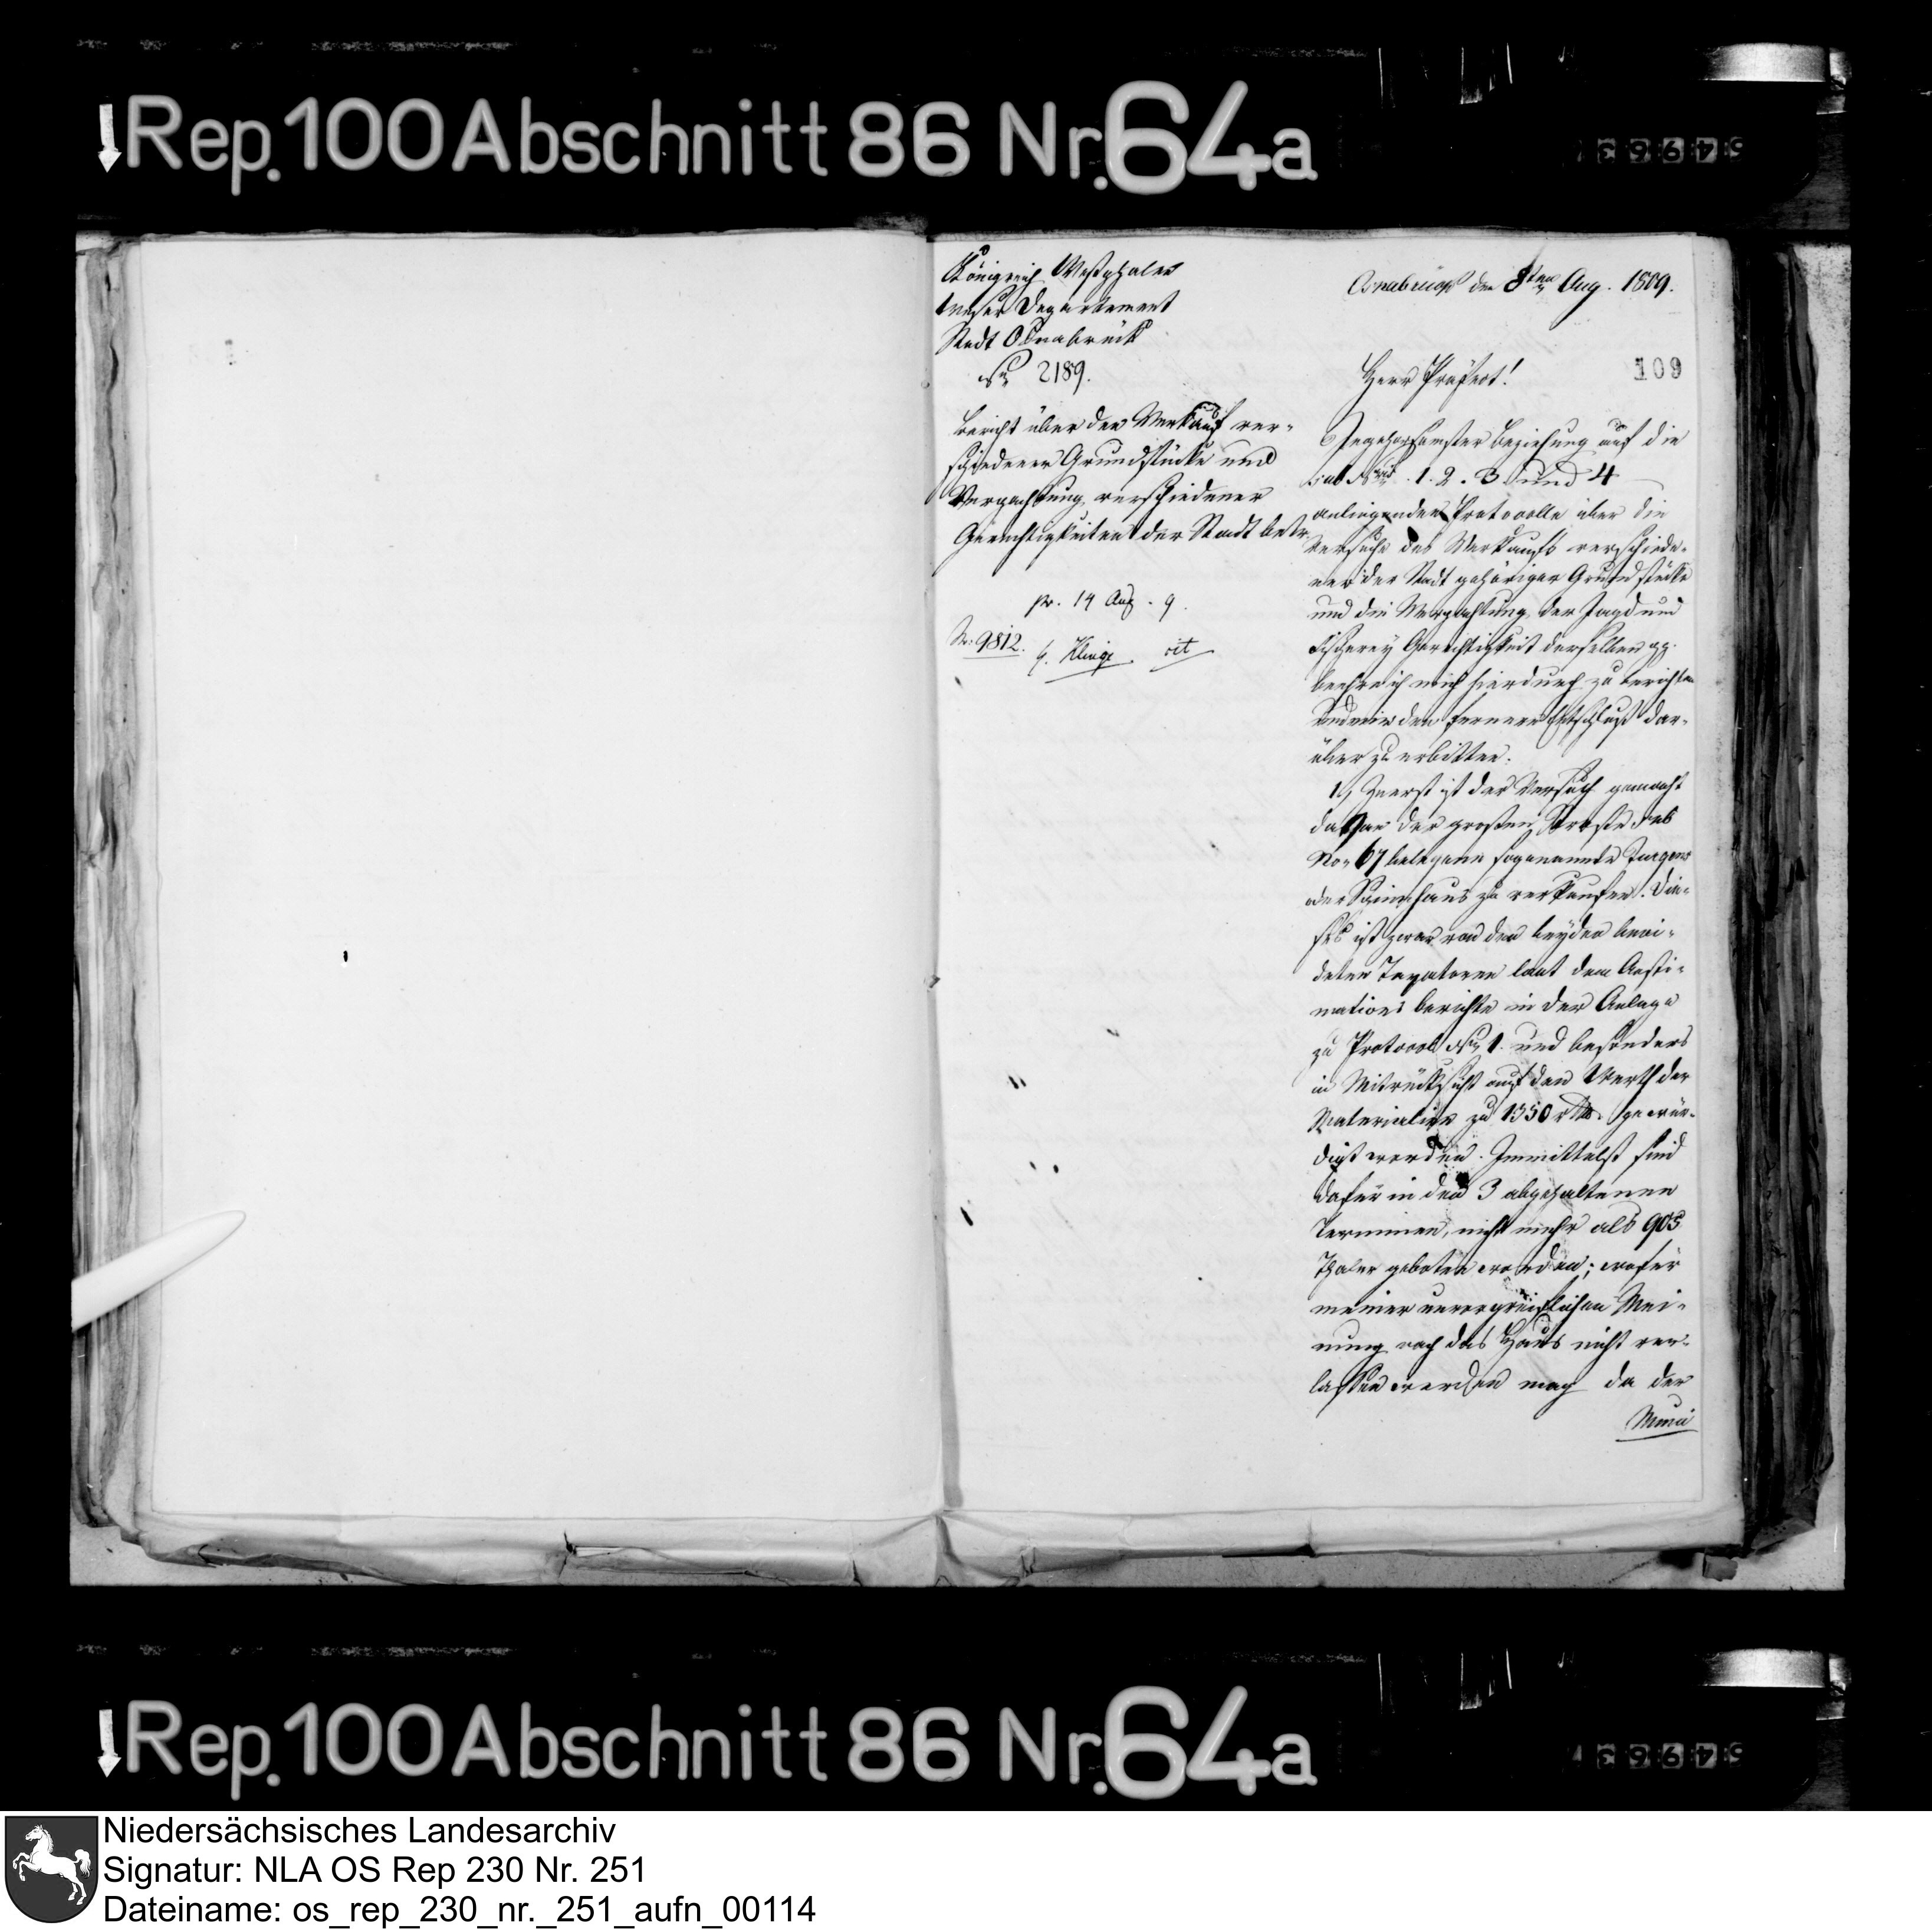 Rep. 100 Abschnitt 86 Nr. 64a
Königreich Westphalen
Weser Departement
Stadt Osnabrück
No 2189.
Bericht über den Verkauf ver-
schiedener Grundstücke und
Verpachtung verschiedener
Gerechtigkeiten der Stadt betr.
pr. 14 Aug. 9.
Nr. 9812.
H. Klinge cit
Osnabrück den 8ten Aug. 1809.
109
Herr Präfect!
In gehorsamster Beziehung auf die
sub Nris 1. 2. 3 und 4
anliegenden Protocolle über die
Versuche des Verkaufs verschiede-
ner der Stadt gehöriger Grundstücke
und die Verpachtung der Jagd und
Fischerey Gerechtigkeit derselben pp.
beehre ich mich hierdurch zu berichten
und mir den fernern Entschluß dar-
über zu erbitten.
1, Zuerst ist der Versuch gemacht
das an der großen Straße sub
No 67 belegene sogenannte Jurgens
oder Spinnhaus zu verkaufen. Die-
ses ist zwar von den beyden beei-
deten Taxatoren laut dem Aesti-
mations berichte in der Anlage
zu Protocoll No 1. und besonders
in Mitrücksicht auf den Werth der
Materialien zu 1350 rthlr. gewür-
digt worden. Immittelst sind
dafür in den 3 abgehaltenen
Terminen, nicht mehr als 905
Thaler geboten worden; wofür
meiner unvorgreiflichen Mei-
nung nach das Haus nicht ver-
lassen werden mag da der
Muni
Rep. 100 Abschnitt 86 Nr. 64a
Niedersächsisches Landesarchiv
Signatur: NLA OS Rep 230 Nr. 251
Dateiname: os_rep_230_nr._251_aufn_00114